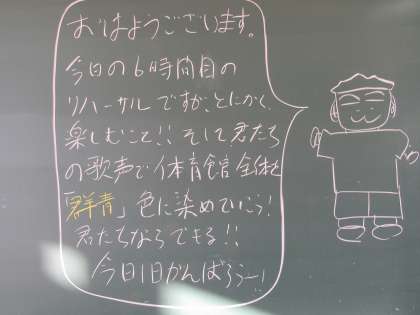 おはようございます。
今日の6時間目の
リハーサルですが、とにかく、
楽しむこと!! そして君たち
の歌声で体育館全体を
「群青」色に染めていこう!
君たちならできる!!
今日1日がんばろうー!